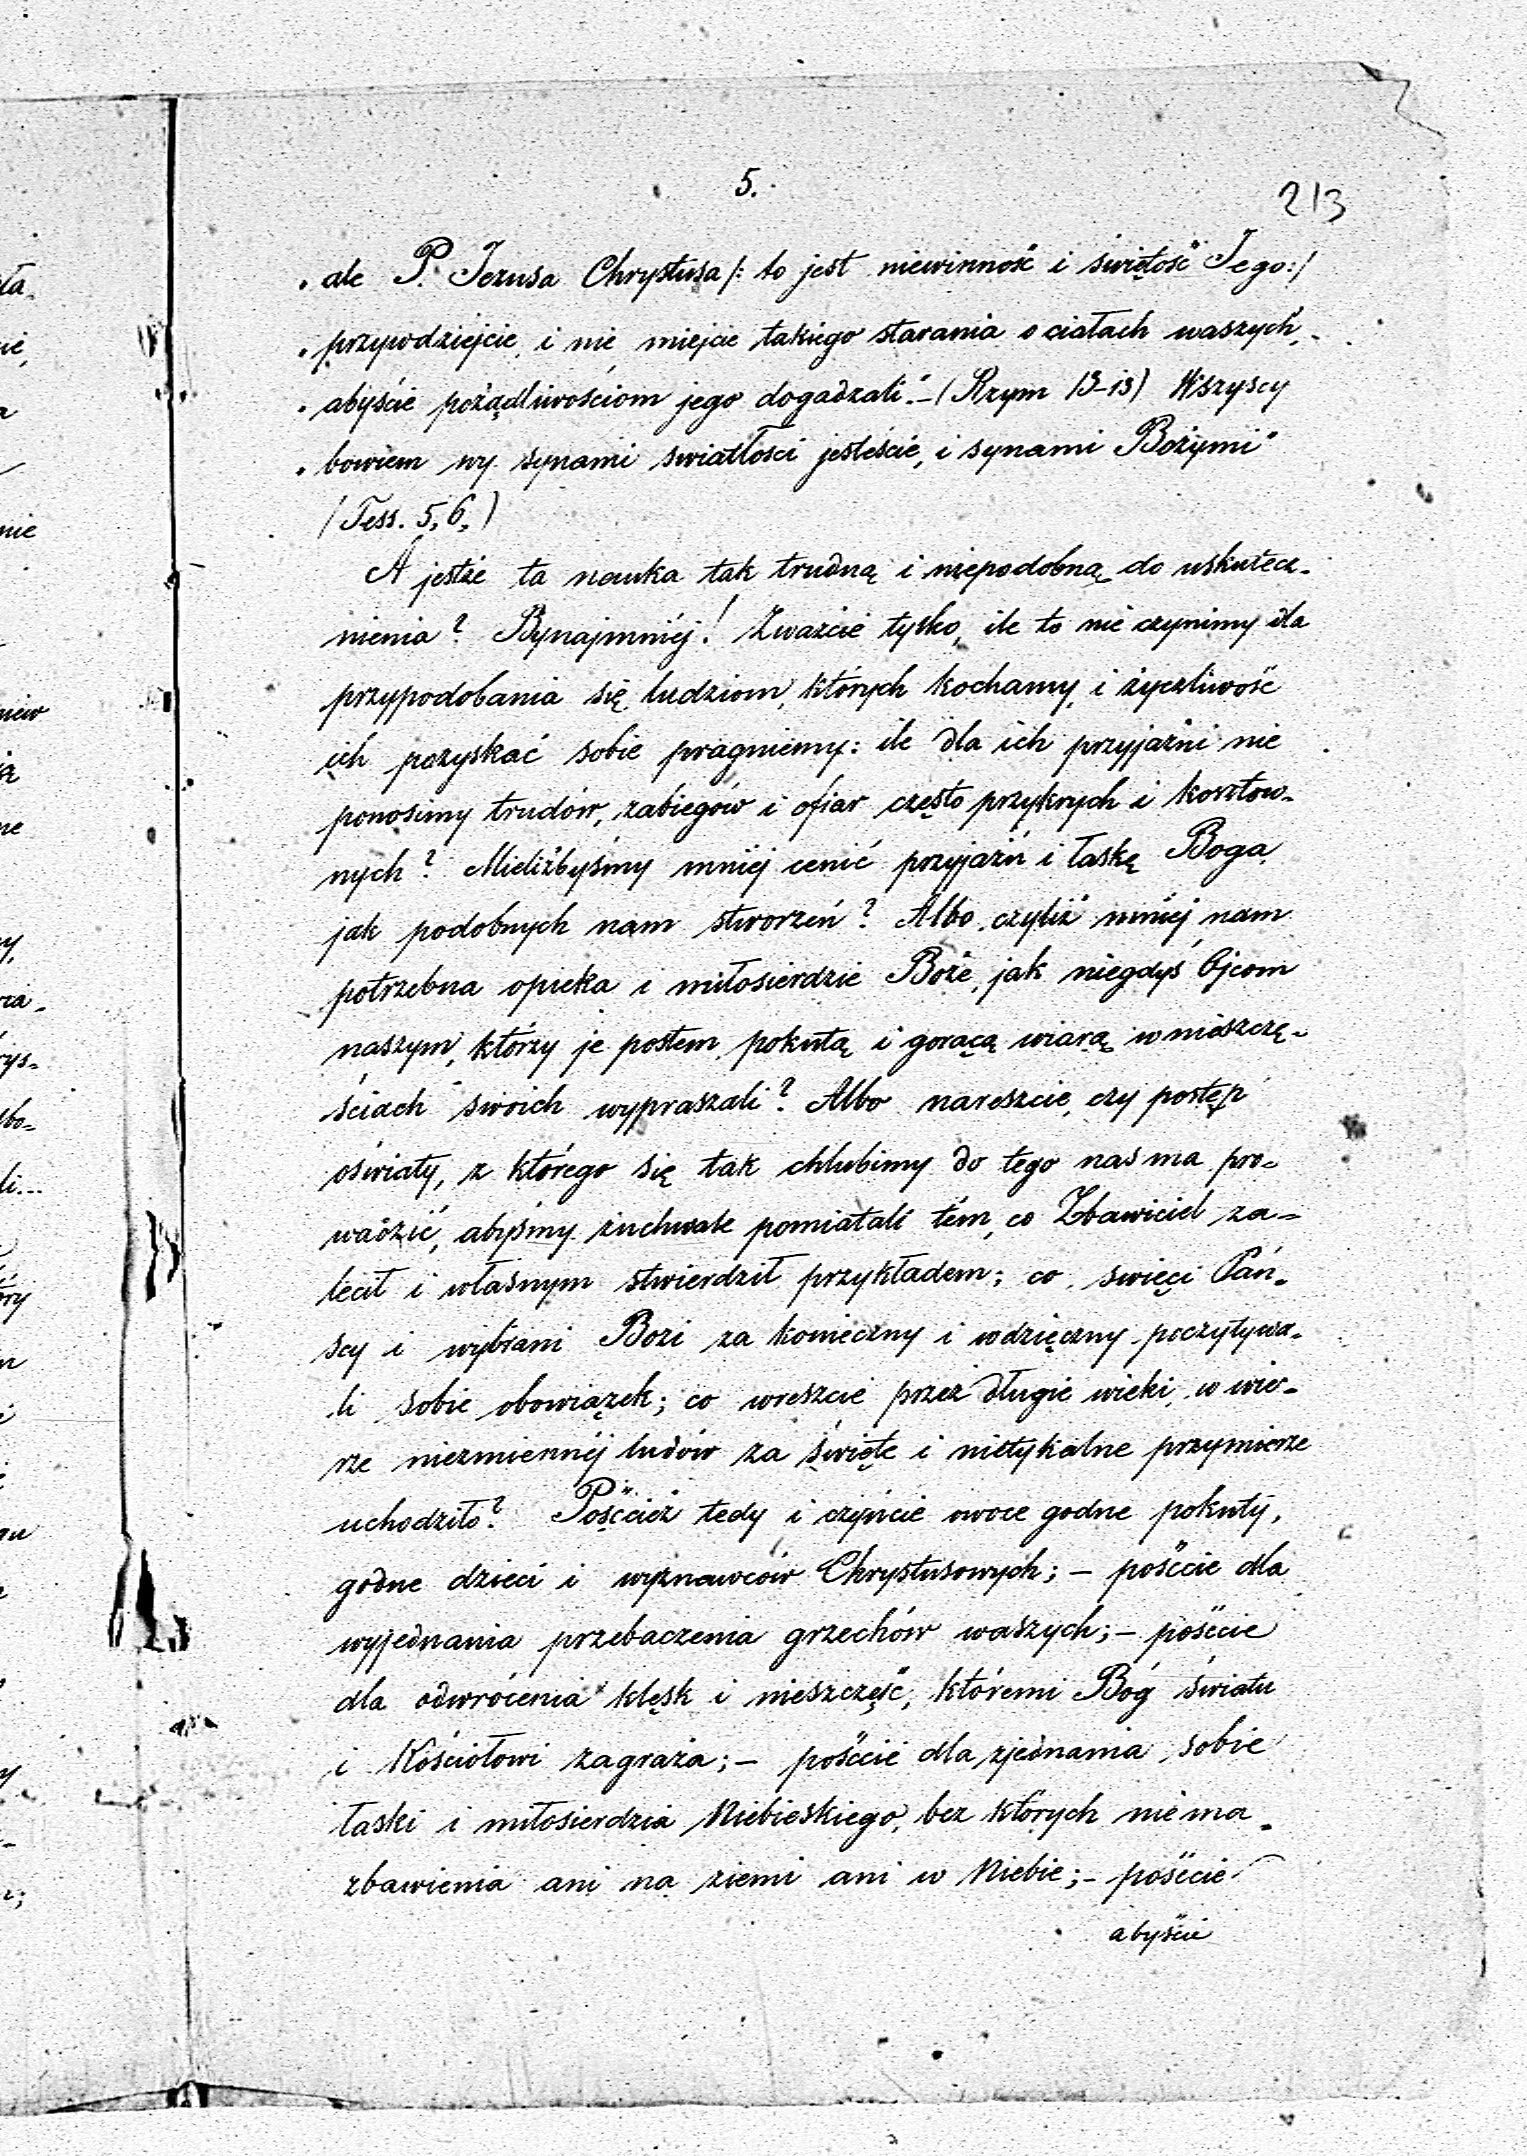 5.
213
„ ale P. Jezusa Chrystusa /: to jest niewinność i świętość Jego :/
„ przywdziejcie, i nie miejcie takiego starania o ciałach waszych,
„ abyście pożądliwościom jego dogadzali." – (Rzym 13-13) Wszyscy
„ bowiem wy synami światłości jesteście, i synami Bożymi"
(Tess. 5, 6,)
A jestże ta nauka tak trudną i niepodobną do uskutecz-
nienia? Bynajmniéj! Zważcie tylko, ile to nie czynimy dla
przypodobania się ludziom, których kochamy, i życzliwość
ich pozyskać sobie pragniemy: ile dla ich przyjaźni nie
ponosimy trudów, zabiegów i ofiar często przykrych i kosztow-
nych? Mieliżbyśmy mniéj cenić przyjaźń i łaskę Boga,
jak podobnych nam stworzeń? Albo, czyliż mniéj nam
potrzebna opieka i miłosierdzie Boże, jak niegdyś Ojcom
naszym, którzy je postem, pokutą i gorącą wiarą w nieszczę-
ściach swoich wypraszali? Albo nareszcie, czy postęp
oświaty, z którego się tak chlubimy do tego nas ma pro-
wadzić, abyśmy zuchwale pomiatali tém, co Zbawiciel za-
lecił i własnym stwierdził przykładem; co święci Pań-
scy i wybrani Bozi za konieczny i wdzięczny poczytywa-
li sobie obowiązek; co wreszcie przez długie wieki, w wie-
rze niezmiennéj ludów za święte i nietykalne przymierze
uchodziło? Pośccież tedy i czyńcie owoce godne pokuty,
godne dzieci i wyznawców Chrystusowych; – pośccie dla
wyjednania przebaczenia grzechów waszych; – pośccie
dla odwrócenia klęsk i nieszczęść, któremi Bóg światu
i Kościołowi zagraża; – pośccie dla zjednania sobie
łaski i miłosierdzia Niebieskiego, bez których niéma
zbawienia ani na ziemi ani w Niebie; – pośccie
abyście